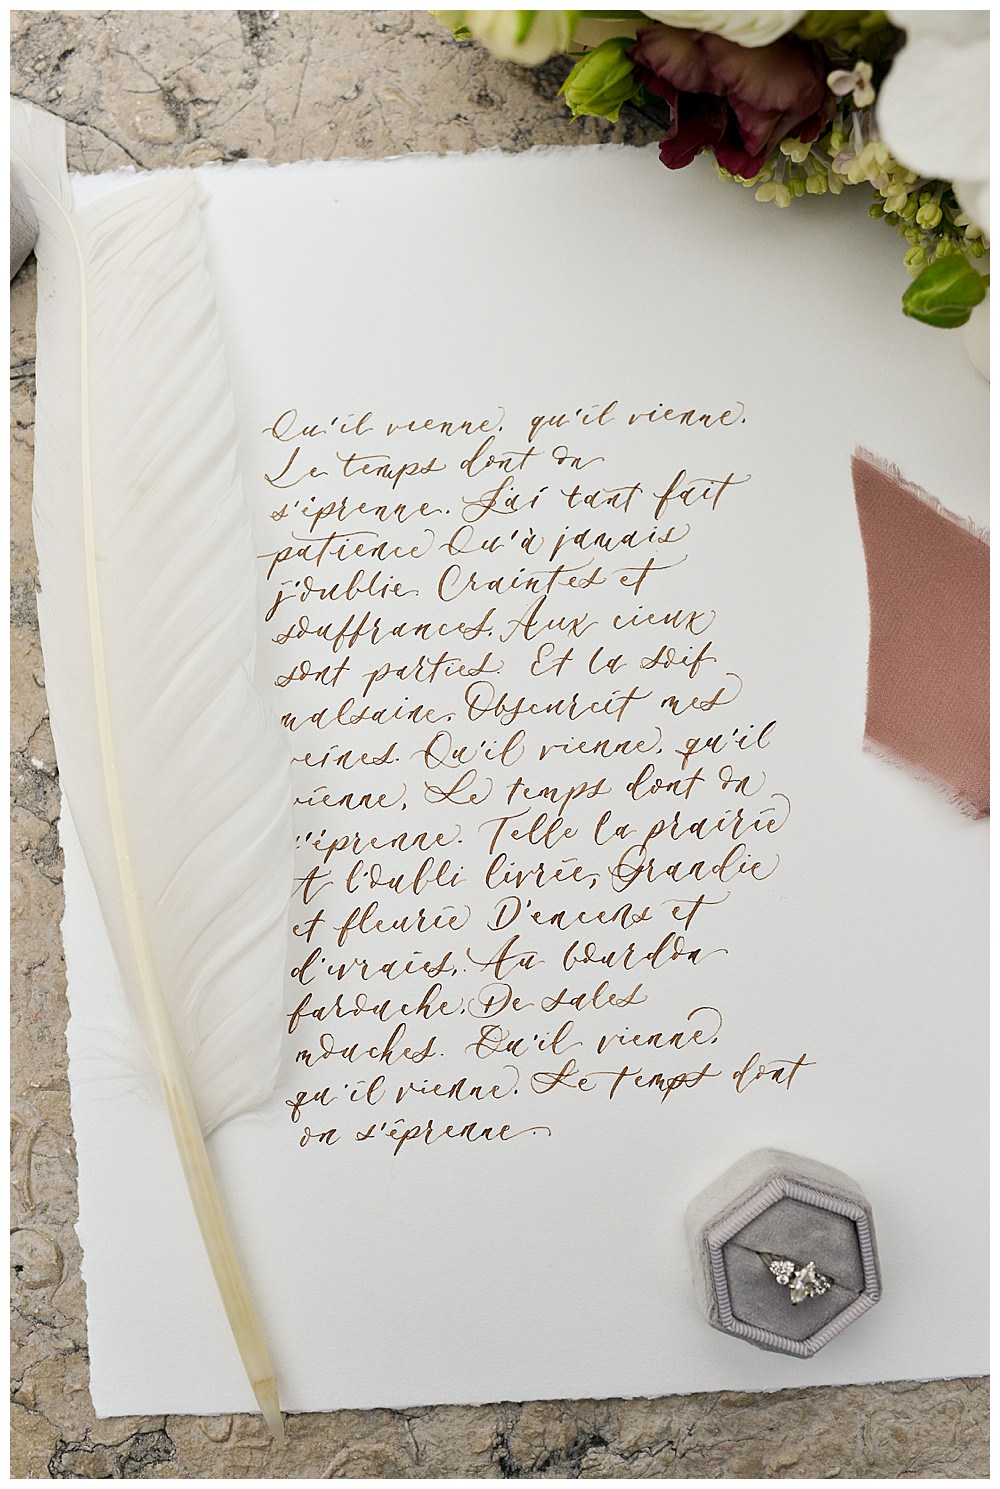 Qu'il vienne, qu'il vienne.
Le temps dont on
s'éprenne. J'ai tant fait
patience Qu'à jamais
j'oublie. Craintes et
souffrances. Aux cieux
sont parties. Et la soif
malsaine. Obscurcit mes
veines. Qu'il vienne, qu'il
vienne, Le temps dont on
s'éprenne. Telle la prairie
A l'oubli livrée, Grandie
et fleurie D'encens et
d'ivraies, Au bourdon
farouche. De sales
mouches. Qu'il vienne,
qu'il vienne. Le temps dont
on s'éprenne.